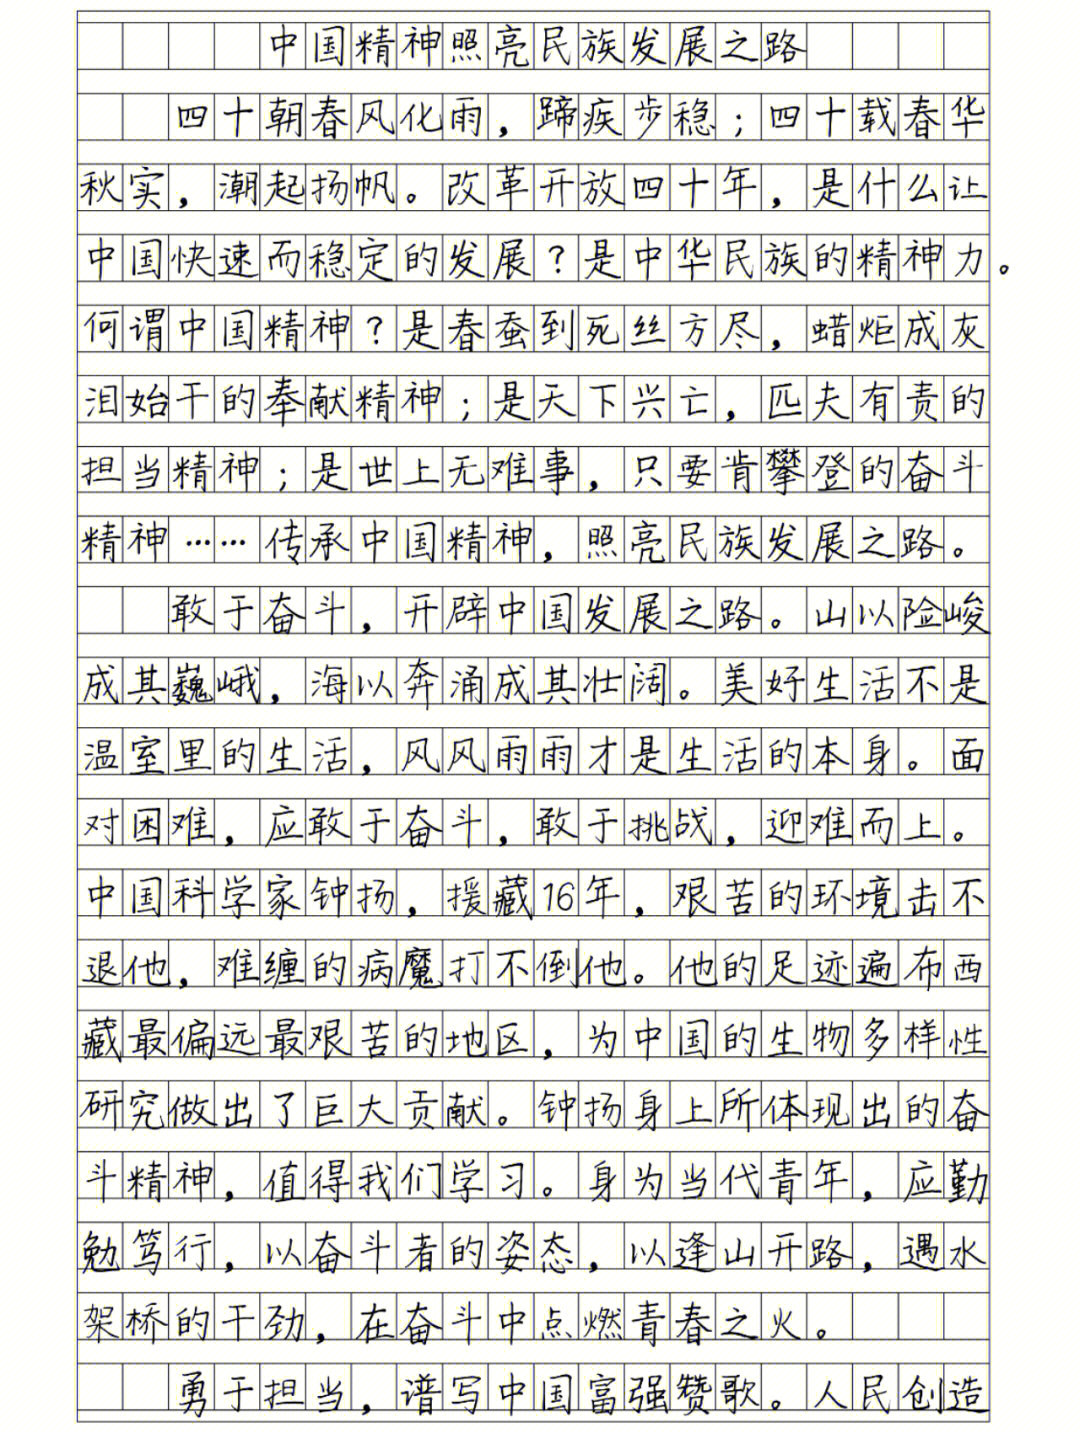 中国精神照亮民族发展之路
四十朝春风化雨，蹄疾步稳；四十载春华
秋实，潮起扬帆。改革开放四十年，是什么让
中国快速而稳定的发展？是中华民族的精神力。
何谓中国精神？是春蚕到死丝方尽，蜡炬成灰
泪始干的奉献精神；是天下兴亡，匹夫有责的
担当精神；是世上无难事，只要肯攀登的奋斗
精神……传承中国精神，照亮民族发展之路。
敢于奋斗，开辟中国发展之路。山以险峻
成其巍峨，海以奔涌成其壮阔。美好生活不是
温室里的生活，风风雨雨才是生活的本身。面
对困难，应敢于奋斗，敢于挑战，迎难而上。
中国科学家钟扬，援藏16年，艰苦的环境击不
退他，难缠的病魔打不倒他。他的足迹遍布西
藏最偏远最艰苦的地区，为中国的生物多样性
研究做出了巨大贡献。钟扬身上所体现出的奋
斗精神，值得我们学习。身为当代青年，应勤
勉笃行，以奋斗者的姿态，以逢山开路，遇水
架桥的干劲，在奋斗中点燃青春之火。
勇于担当，谱写中国富强赞歌。人民创造